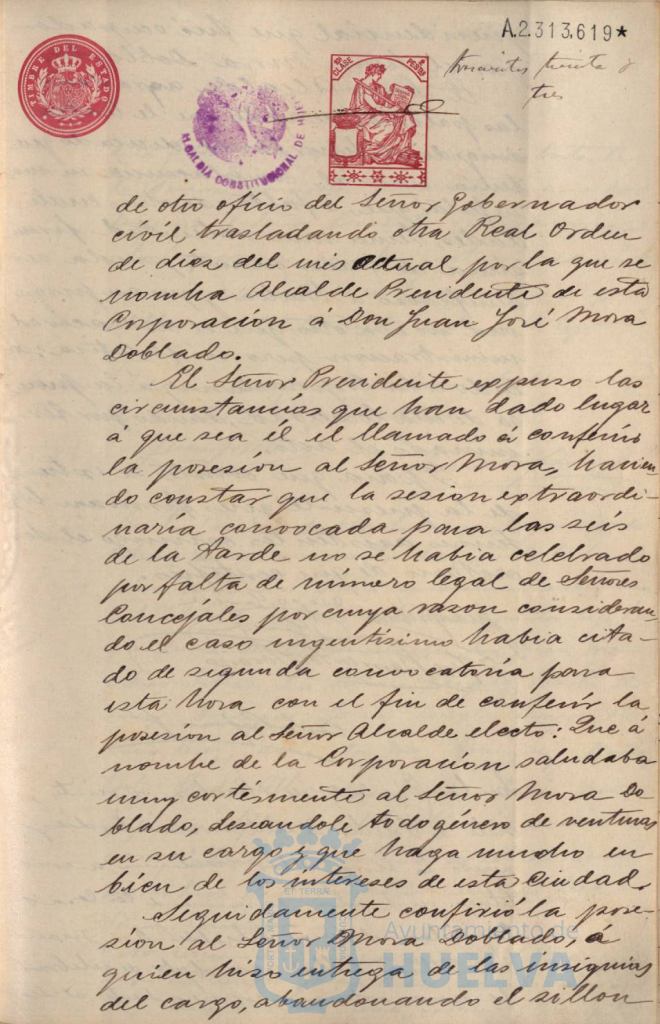 A.2.313.619*
TIMBRE DEL ESTADO
CLASE
PESETA
ALCALDIA CONSTITUCIONAL DE HUEL
trescientos treinta y
tres
de otro oficio del Señor Gobernador
civil trasladando otra Real Orden
de diez del mes actual por la que se
nombra Alcalde Presidente de esta
Corporación á Don Juan José Mora
Doblado.
El Señor Presidente expuso las
circunstancias que han dado lugar
á que sea él el llamado á conferir
la posesión al Señor Mora, hacien-
do constar que la sesion extraordi-
naria convocada para las seis
de la tarde no se habia celebrado
por falta de número legal de Señores
Concejales por cuya razon consideran-
do el caso urgentísimo habia cita-
do de segunda convocatoria para
esta hora con el fin de conferir la
posesión al Señor Alcalde electo: Que á
nombre de la Corporación saludaba
muy cortésmente al Señor Mora Do-
blado, deseandole todo género de venturas
en su cargo y que haga mucho en
bien de los intereses de esta Ciudad.
Seguidamente confirió la pose-
sion al Señor Mora Doblado, á
quien hizo entrega de las insignias
del cargo, abandonando el sillon
Ayuntamiento de
HUELVA